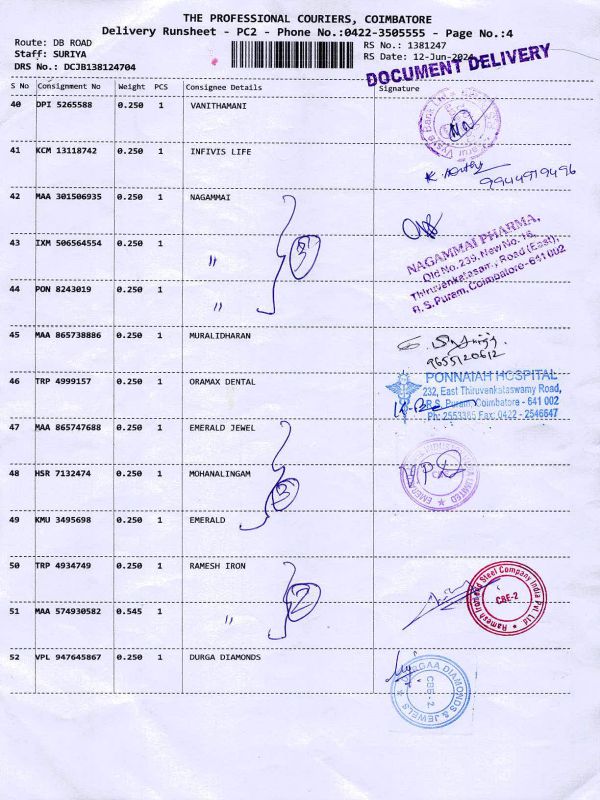 THE PROFESSIONAL COURIERS, COIMBATORE
Delivery Runsheet - PC2 - Phone No.:0422-3505555 - Page No.:4
Route: DB ROAD
Staff: SURIYA
DRS No.: DCJB138124704
RS No.: 1381247
RS Date: 12-Jun-2024
DOCUMENT DELIVERY
S No Consignment No Weight PCS Consignee Details Signature
40 DPI 5265588 0.250 1 VANITHAMANI
41 KCM 13118742 0.250 1 INFIVIS LIFE
9944919496
42 MAA 301506935 0.250 1 NAGAMMAI
43 IXM 506564554 0.250 1 〃 3
NAGAMMAI PHARMA,
Old No. 239, New No. 16,
Thiruvenkatasamy Road (East),
R.S. Puram, Coimbatore-641 002
44 PON 8243019 0.250 1 〃
45 MAA 865738886 0.250 1 MURALIDHARAN
9655120612
46 TRP 4999157 0.250 1 ORAMAX DENTAL
PONNAIAH HOSPITAL
232, East Thiruvenkataswamy Road,
R.S. Puram, Coimbatore - 641 002
Ph: 2553385 Fax: 0422 - 2546647
47 MAA 865747688 0.250 1 EMERALD JEWEL
48 HSR 7132474 0.250 1 MOHANALINGAM
3
49 KMU 3495698 0.250 1 EMERALD
50 TRP 4934749 0.250 1 RAMESH IRON
2
Ramesh Iron and Steel Company India Pvt. Ltd.
CBE-2
51 MAA 574930582 0.545 1 〃
52 VPL 947645867 0.250 1 DURGA DIAMONDS
DURGAA DIAMONDS & JEWELS
CBE-2